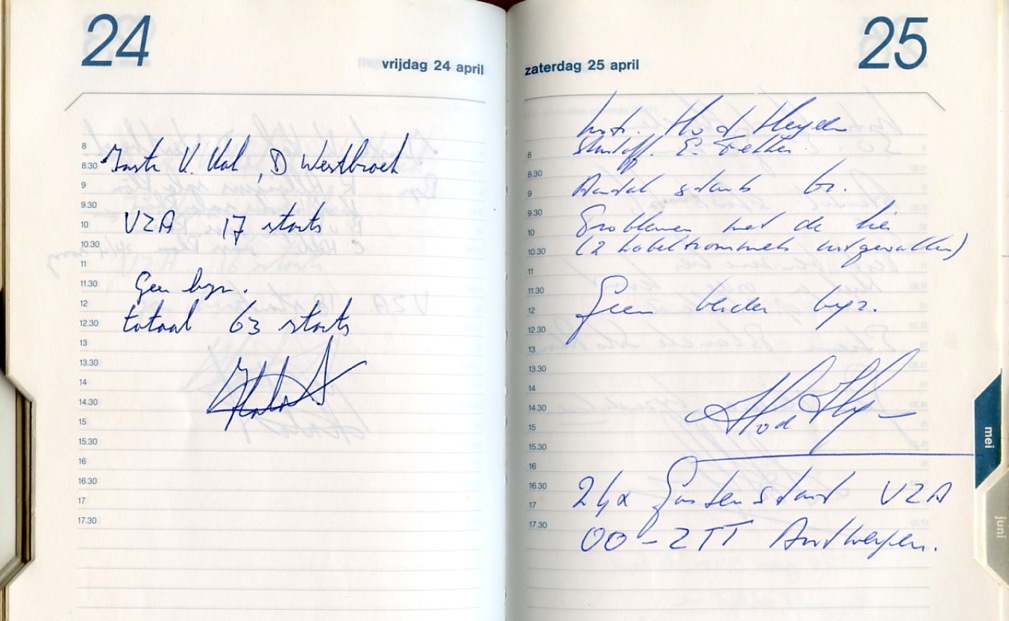 24
vrijdag 24 april
8
8.30
9
9.30
10
10.30
11
11.30
12
12.30
13
13.30
14
14.30
15
15.30
16
16.30
17
17.30
Instr V. Val, D Westbroek
VZA 17 starts
Geen bijz.
totaal 63 starts
25
zaterdag 25 april
8
8.30
9
9.30
10
10.30
11
11.30
12
12.30
13
13.30
14
14.30
15
15.30
16
16.30
17
17.30
Instr. H v d Heyden
Startoff. E.
Aantal starts
Problemen met de lier
(2 kabeltrommels uitgevallen)
Geen verder bijz.
24x Gastenstart VZA
OO-ZTT Antwerpen.
mei
juni